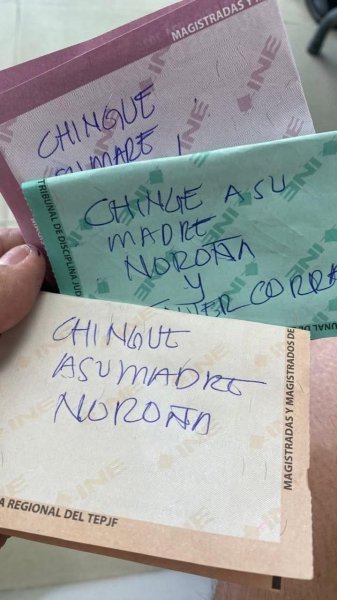 MAGISTRADAS Y
INE
CHINGUE
ASUMADRE
TRIBUNAL DE DISCIPLINA JUD
INE
CHINGE ASU
MADRE
NOROÑA
Y
CORRA
CHINGUE
ASUMADRE
NOROÑA
INE
MAGISTRADAS Y MAGISTRADOS DE
A REGIONAL DEL TEPJF